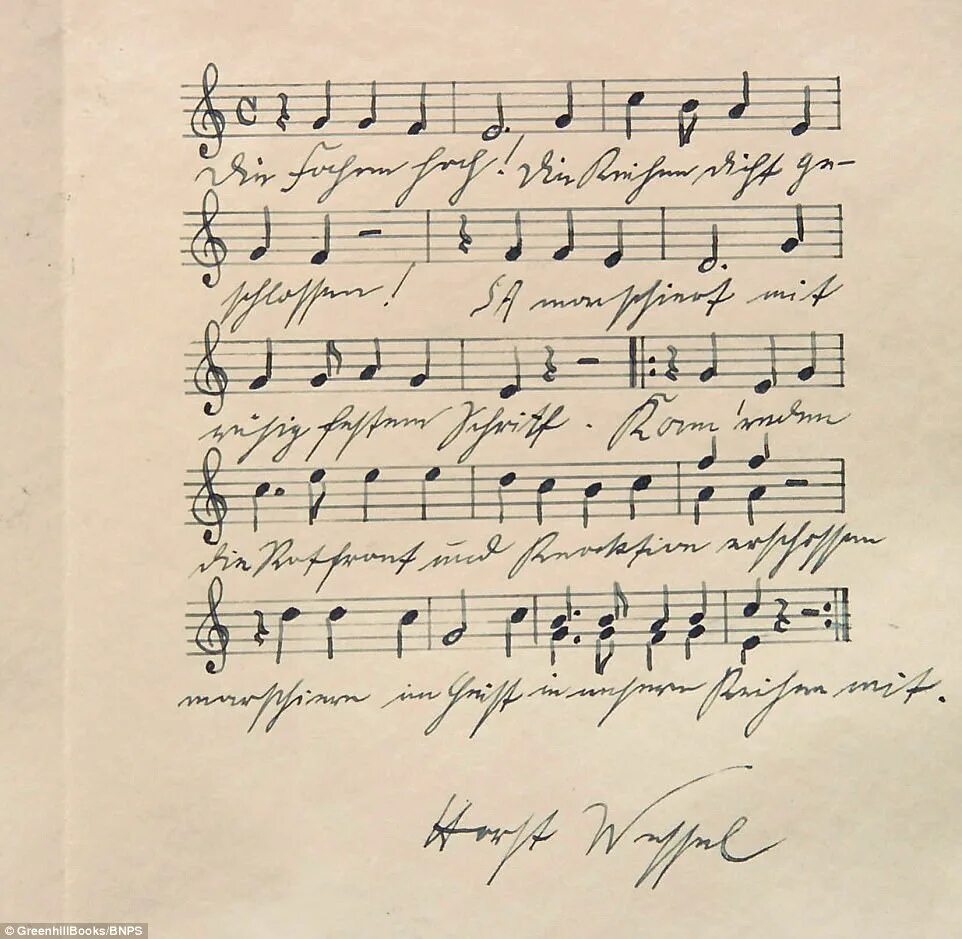 Die Fahnen hoch! Die Reihen dicht ge-
schlossen! SA marschiert mit
ruhig festem Schritt. Kam'raden
die Rotfront und Reaktion erschossen
marschiern im Geist in unsern Reihen mit.
Horst Wessel
© GreenhillBooks/BNPS